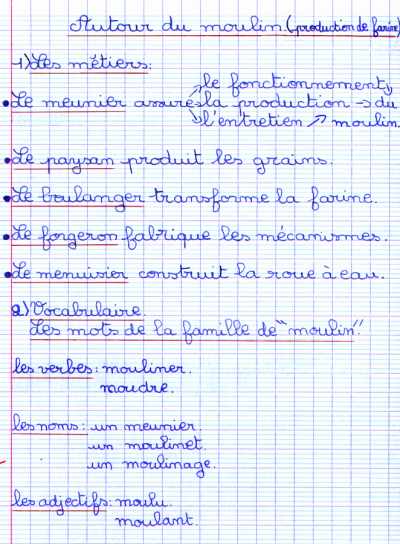 Autour du moulin (production de farine)
1) Les métiers:
le fonctionnement
Le meunier assure la production du
l'entretien moulin.
Le paysan produit les grains.
Le boulanger transforme la farine.
Le forgeron fabrique les mécanismes.
Le menuisier construit la roue à eau.
2) Vocabulaire.
Les mots de la famille de "moulin".
les verbes: mouliner.
moudre.
les noms: un meunier.
un moulinet.
un moulinage.
les adjectifs: moulu.
moulant.